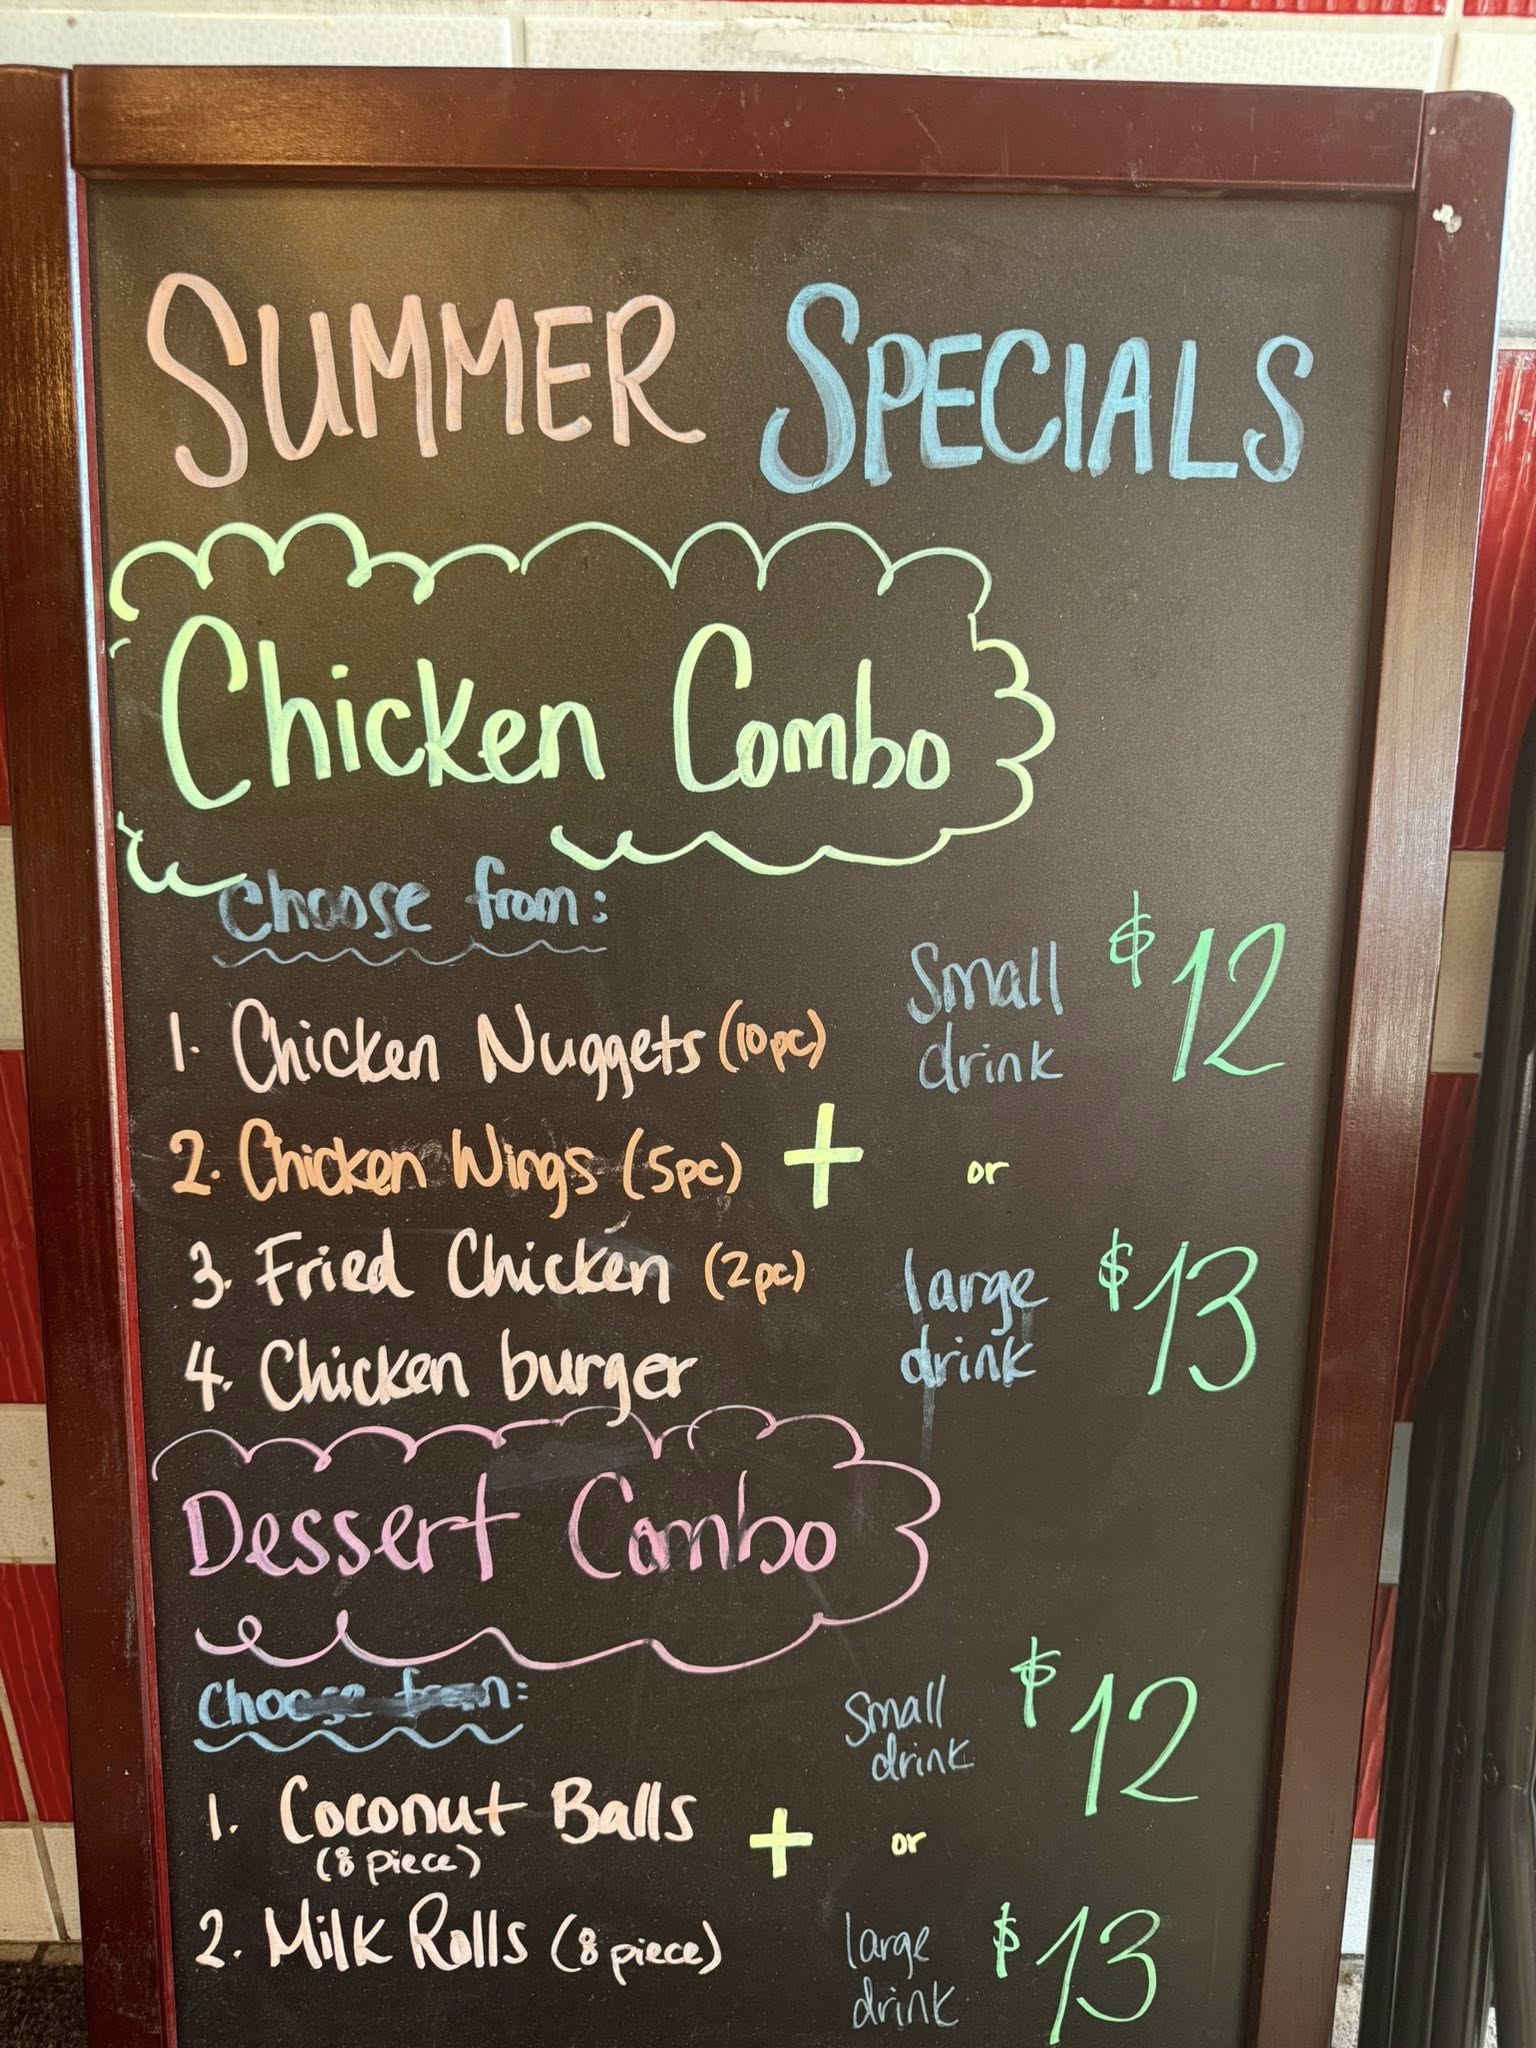 SUMMER SPECIALS
Chicken Combo
Choose from:
1. Chicken Nuggets (10pc)
2. Chicken Wings (5pc)
3. Fried Chicken (2pc)
4. Chicken burger
+
small
drink
$12
or
large
drink
$13
Dessert Combo
Choose from:
1. Coconut Balls
(8 piece)
2. Milk Rolls (8 piece)
+
small
drink
$12
or
large
drink
$13